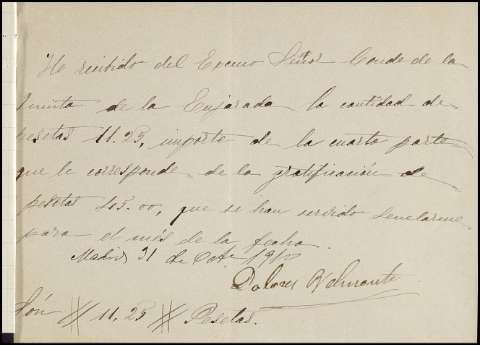 He recibido del Excmo Señor Conde de la
Quinta de la Enjarada la cantidad de
pesetas 11.25, importe de la cuarta parte
que le corresponde de la gratificación de
pesetas 45.00, que se han servido señalarme
para el mes de la fecha.
Madrid 31 de Octe
Dolores Belmonte
Són # 11.25 # Pesetas.